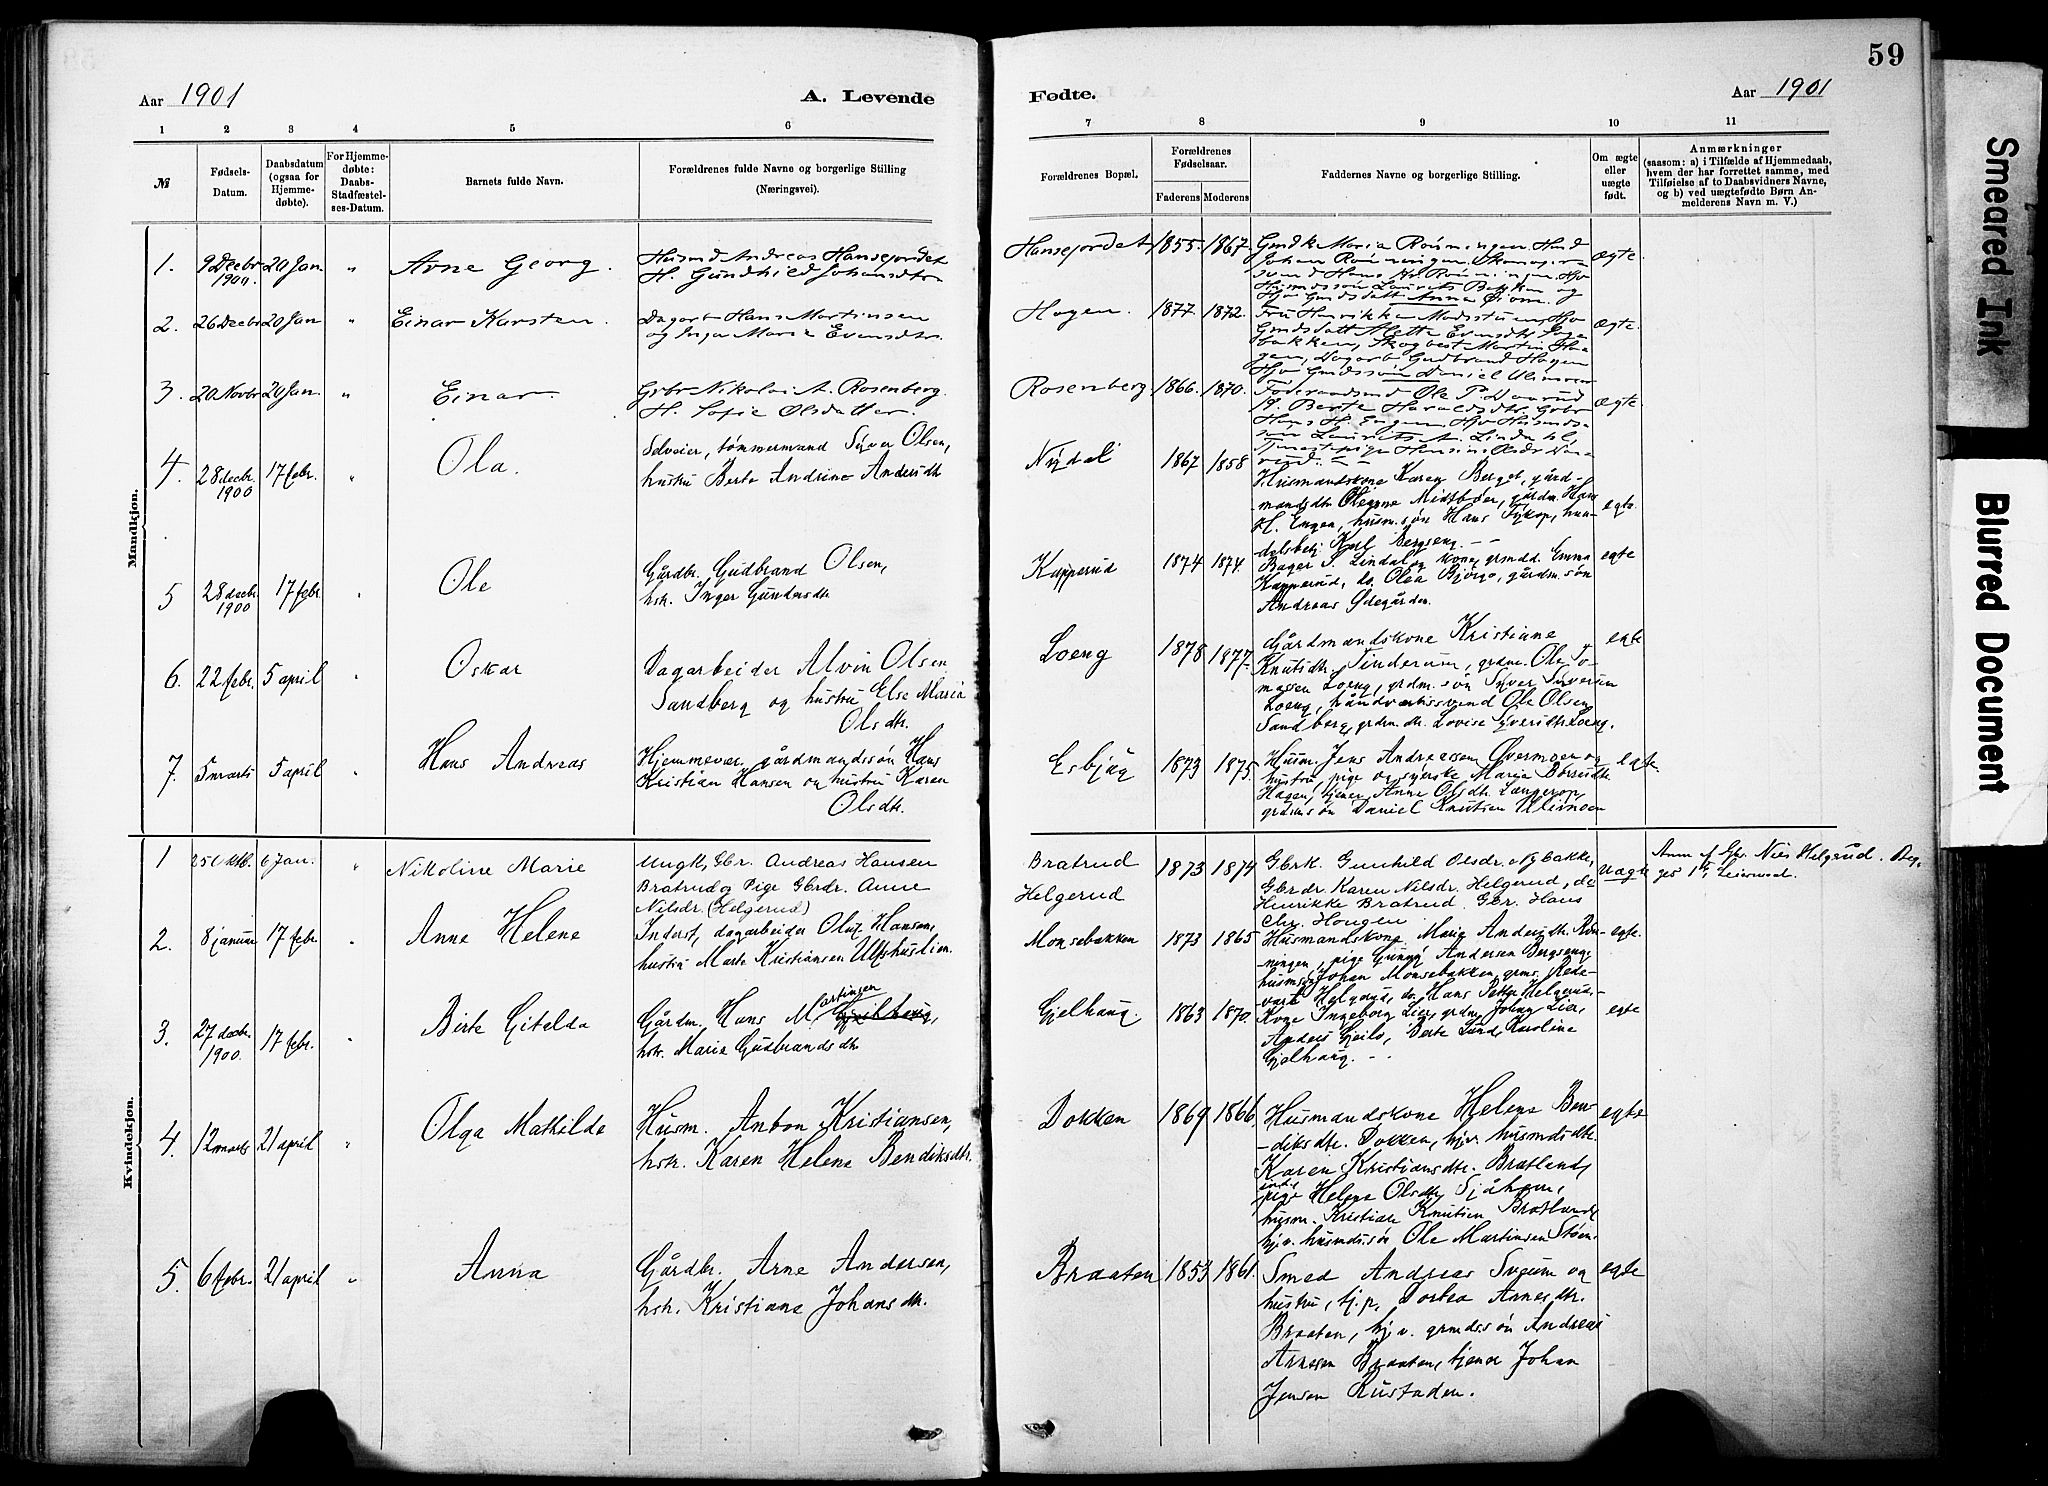 59
Aar 1901
A. Levende
Fødte.
Aar 1901
1 2 3 4 5 6 7 8 9 10 11
№
Fødsels-
Datum.
Daabsdatum
(ogsaa for
Hjemme-
døbte).
For Hjemme-
døbte:
Daabs-
Stadfæstel-
ses-Datum.
Barnets fulde Navn.
Forældrenes fulde Navne og borgerlige Stilling
(Næringsvei).
Forældrenes Bopæl.
Forældrenes
Fødselsaar.
Faderens
Moderens
Faddernes Navne og borgerlige Stilling.
Om ægte
eller
uægte
født.
Anmærkninger
(saasom: a) i Tilfælde af Hjemmedaab,
hvem der har forrettet samme, med
Tilføielse af to Daabsvidners Navne,
og b) ved uægtefødte Børn An-
melderens Navn m. V.)
Mandkjøn.
1. 9 Decbr 1900. 20 Jan. " Arne Georg.
Husmd Andreas Hansejordet
H. Gundhild Johansdtr.
Hansejordet 1855 1867.
Gmdk Maria Rønningen
Johan Rønningen
Hans Rønningen
Laurits Bakken og
Anna
Ægte.
2. 26 Decbr 20 Jan " Einar Karsten.
Dagarb Hans Martinsen
og Inga Marie Evensdtr.
Hagen. 1877 1872.
Fru Henrikke
Alette Evensdtr
Martin Ha-
gen, Dagarb Gudbrand Hagen
Daniel Ulimoen
Ægte.
3. 20 Novbr 20 Jan. " Einar
Gbr Nikolai A. Rosenberg.
H. Sofie Olsdatter.
Rosenberg 1866. 1870.
Føderaadsmd Ole P.
H. Berte Haraldsdtr. Gbr
Hans H. Engen
Laurits A. Lindahl,
Ægte.
4. 28 decbr. 1900 17 febr. " Ola.
Selveier, tømmermand Syver Olsen,
hustru Berte Andrine Andersdtr
Nydal 1867 1858
Husmandskone Karen Berget, gård-
mandsdtr. Midtbøer, gårdm. Hans
H. Engen, husm. søn Hans han-
delsbetj. Karl Bergseng. - -
egte.
5 28 decbr. 1900 17 febr. Ole
Gårdbr. Gudbrand Olsen,
hstr. Inger Gundersdtr
Kapperud 1874 1874.
Bager S. Lindal og kone, grmdd. Emma
Kapperud, do Olea gårdm. søn
Andreas Ødegården.
egte
6. 22 febr. 5 april " Oskar
Dagarbeider Alvin Olsen
Sandberg og hustru Else Maria
Olsdtr.
Loeng 1878 1877.
Gårdmandskone Kristiane
Knutsdtr. Tinderum, grdm. Ole To-
massen Loeng, grdm. søn Syver Syversen
Loeng, håndverkssvend Ole Olsen
Sandberg, grdm. dtr. Lovise Syversdtr Loeng.
egte
7. 5 marts 5 april " Hans Andreas
Hjemmevær. gårdmandssøn Hans
Kristian Hansen og hustru Karen
Olsdtr.
Esbjug 1873 1875.
Husm. Jens Andreassen Øvermoen og
hustru, pige og syerske Maria
Hagen, tjener Anne Olsdtr.
grdmsøn Daniel Knutsen Ulimoen
egte.
Kvindekjøn.
1 25 Oktb. 6 Jan. " Nikoline Marie
Ungk, Gbr. Andreas Hansen
Bratrud og Pige Gbrdr. Anne
Nilsdr. (Helgerud)
Bratrud
Helgerud
1873 1874
Gbrk. Gunhild Olsdr. Nybakke,
Gbrdr. Karen Nilsdr. Helgerud, do
Henrikke Bratrud. Gbr. Hans
Chr. Haugen
Uægte
Anm af Gbr. Nils Helgerud. Beg-
ges 1ste Leiermaal.
2. 8 januar 17 febr. " Anne Helene
Inderst, dagarbeider Oluf Hansen,
hustru Marte Kristiansen Ulfshuslien.
Monsebakken 1873 1865
Husmandskone Marie Andersdtr. Røn-
ningen, pige Andersen Bergseng,
husmsøn Johan Monsebakken, grms. Rede-
vart Helgerud, do Hans Petter Helgerud.
egte.
3. 27 decbr. 1900. 17 febr. " Birte Gitelda
Gårdm. Hans Martinsen
hstr. Maria Gudbrandsdtr
Gjelhaug. 1863 1870.
Kone Ingeborg Lier, grdm. Lier,
Anders Berte Lund, Karoline
Gjelhaug. - -
egte
4. 12 marts 21 april " Olga Mathilde
Husm. Anton Kristiansen,
hstr. Karen Helene Bendiksdtr.
Dokken 1869 1866.
Husmandskone Helene Ben-
diksdtr. Dokken, hjv. husmdsdtr.
Karen Kristiansdtr. Bratland,
pige Helene Olsdtr.
husm. Kristian Knutsen Bratland,
hjv. husmdssøn Ole Martinsen Støen.
egte
5. 6 febr. 21 april " Anna
Gårdbr. Arne Andersen,
hstr. Kristiane Johansdtr.
Braaten 1853 1861.
Smed Andreas Sveum og
hustru, tj.p. Dortea Arnesdtr.
Braaten, hjv. grmdssøn Andreas
Arnesen Braaten, tjener Johan
Jensen Rustaden.
egte
Smeared Ink
Blurred Document